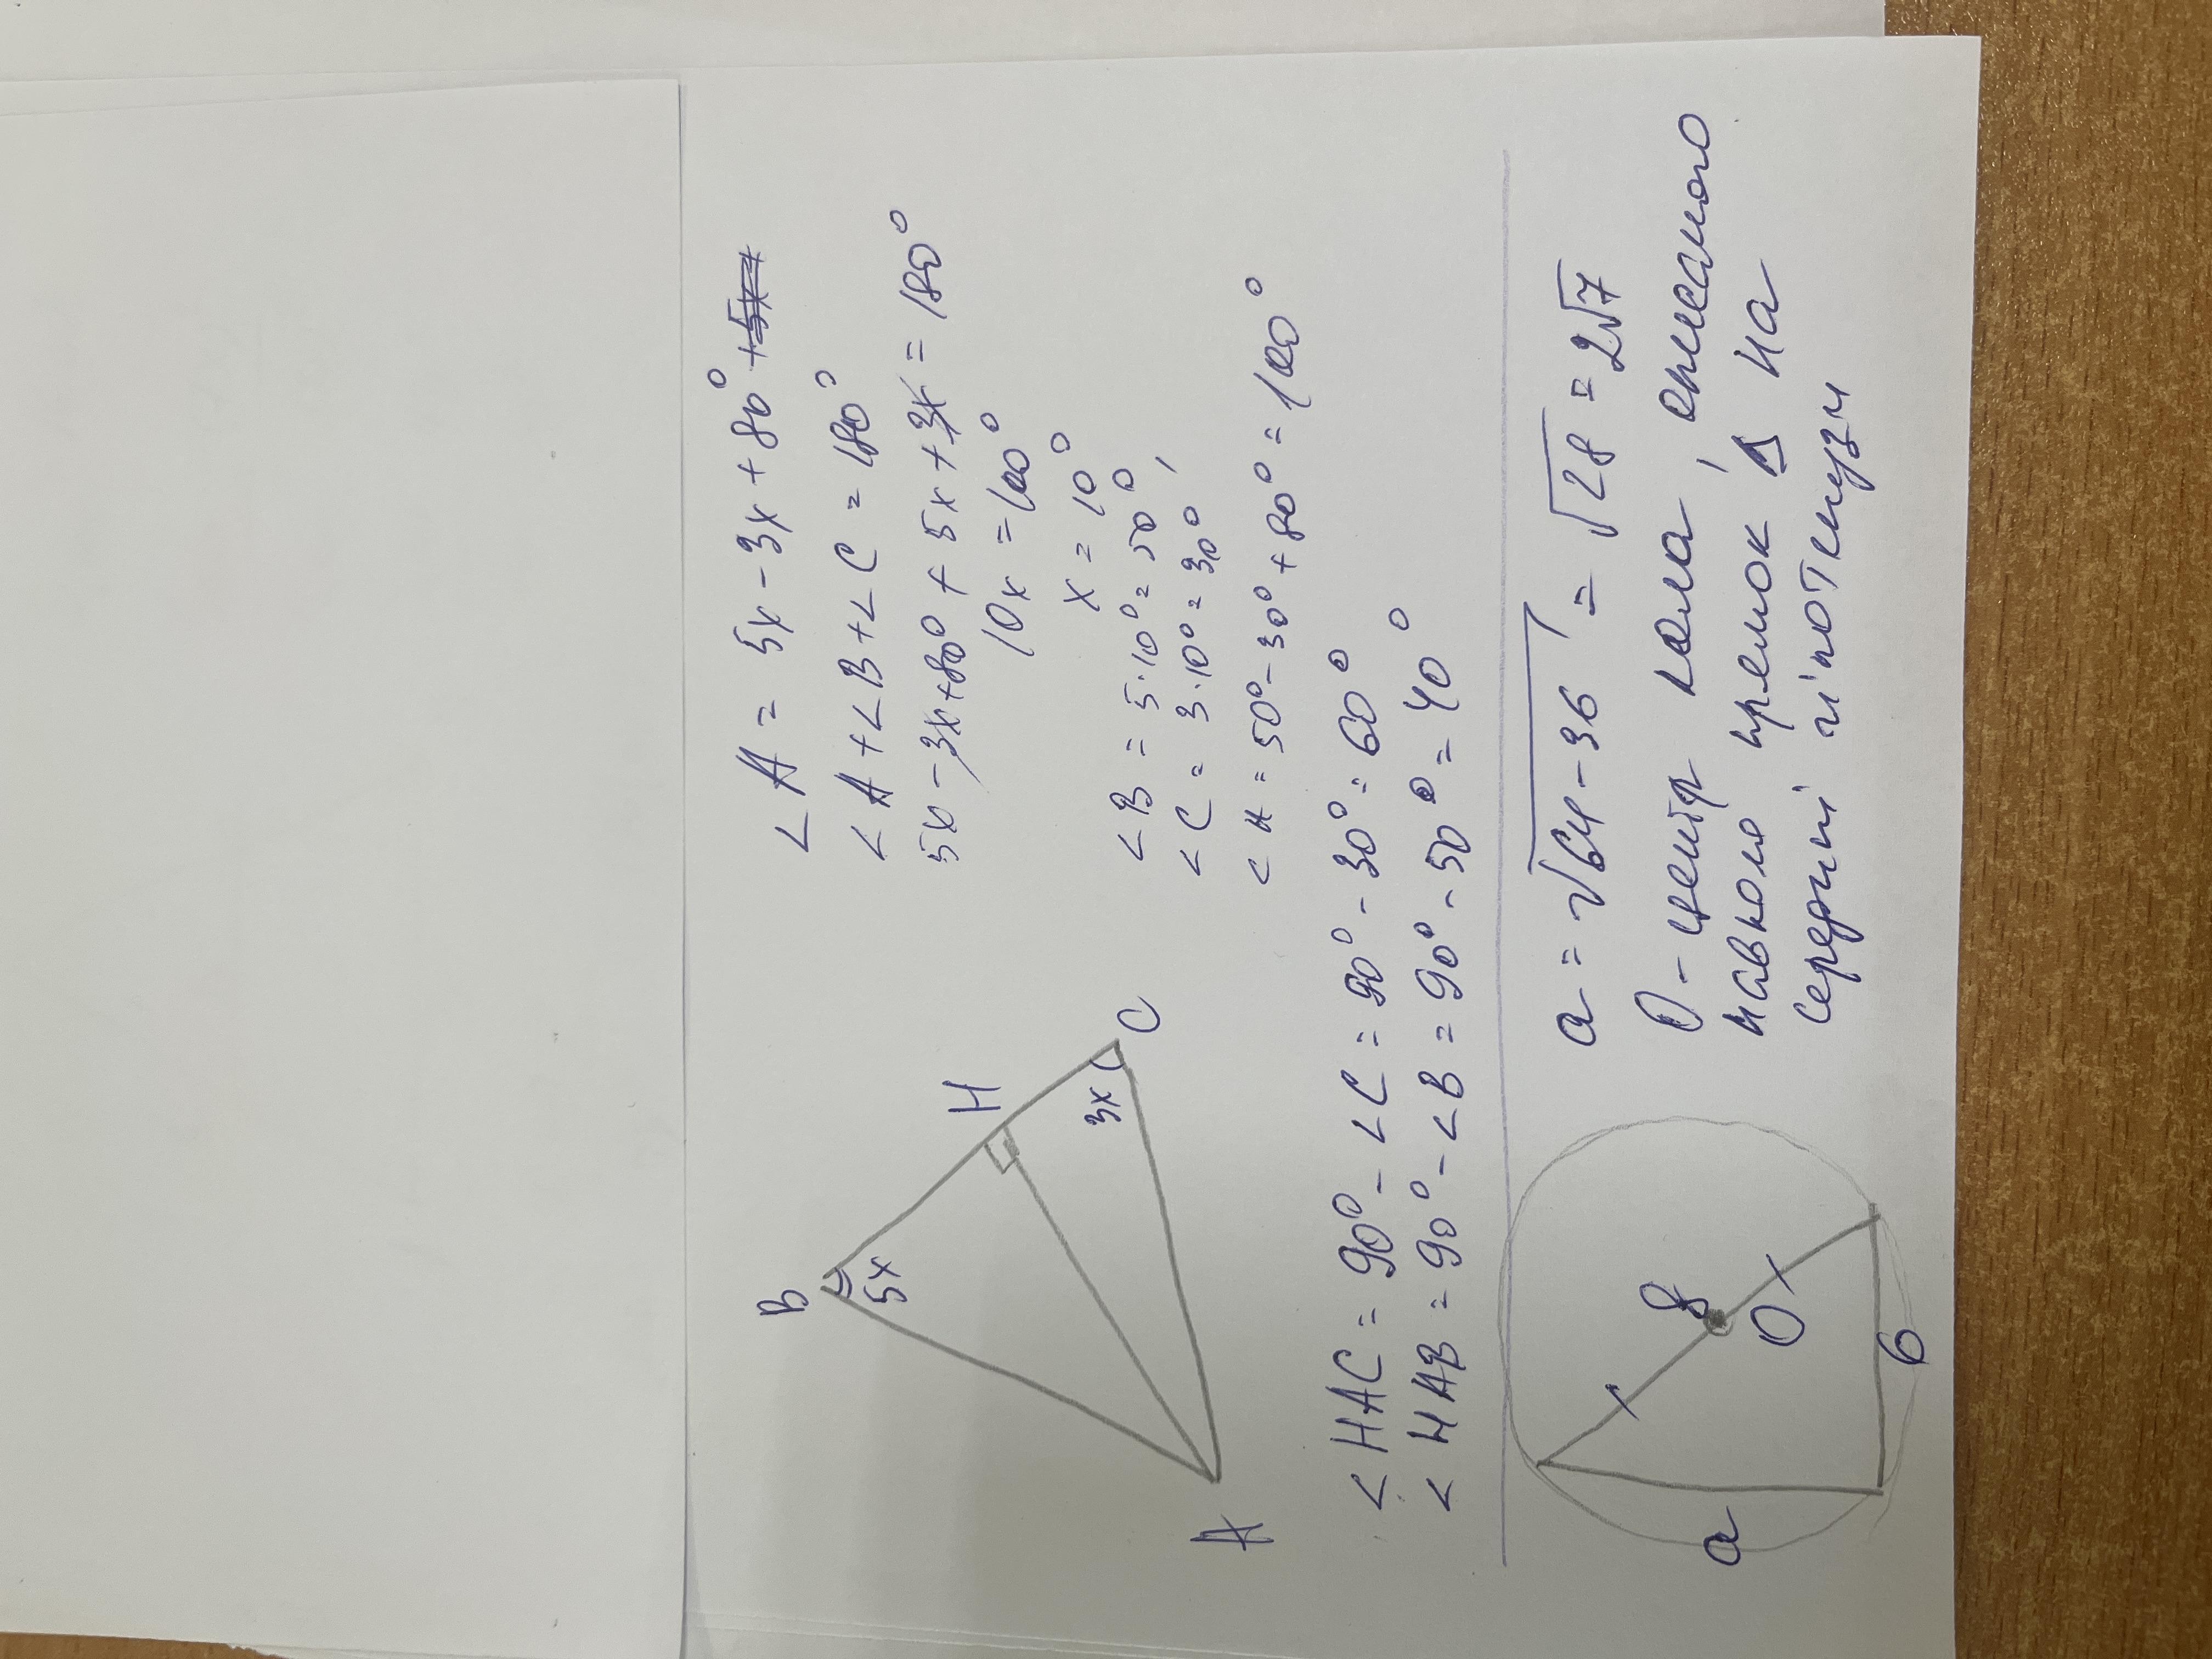 ∠A = 5x - 3x + 80° + 5x
∠A + ∠B + ∠C = 180°
5x - 3x + 80° + 5x + 3x = 180°
10x = 100°
x = 10°
∠B = 5·10° = 50°,
∠C = 3·10° = 30°
∠A = 50° - 30° + 80° = 100°
B
5x
H
3x
C
A
∠HAC = 90° - ∠C = 90° - 30° = 60°
∠HAB = 90° - ∠B = 90° - 50° = 40°
a = √64-36 = √28 = 2√7
O - центр кола, описаного
навколо прямок Δ на
середині гіпотенузи
a
8
O
6